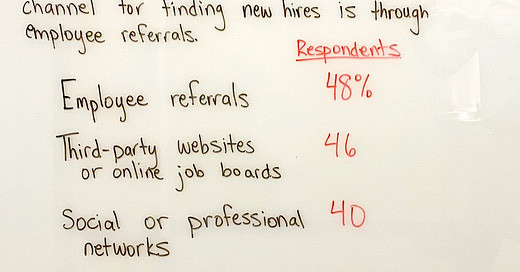 channel for finding new hires is through
employee referrals.
Respondents
Employee referrals 48%
Third-party websites 46
or online job boards
Social or professional 40
networks